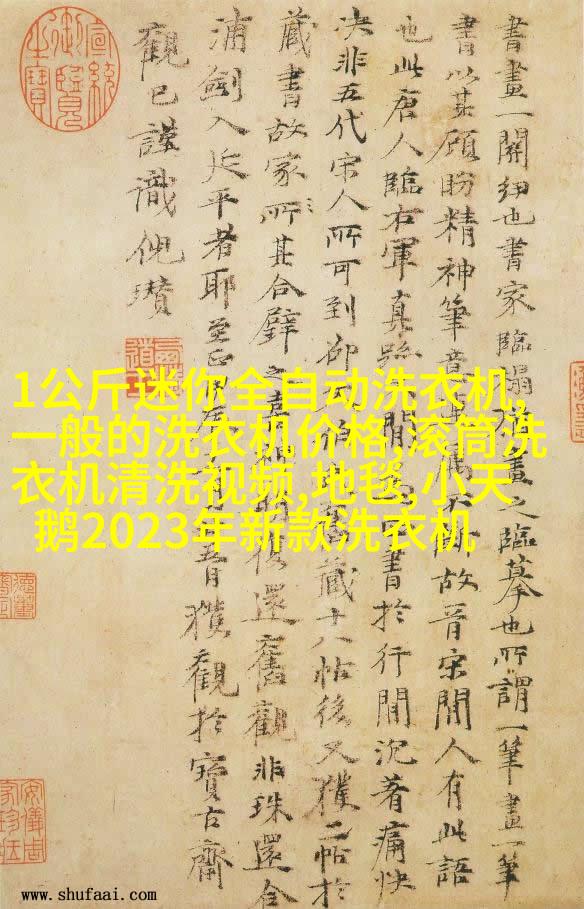 書畫一關紐也書家臨榻猶畫之臨摹也所謂一筆畫一筆
書以其顧盼精神筆意故晉宋間人有此語
也此唐人臨右軍真蹟間書於行間沉著痛快
決非五代宋人所可到卻藏十八帖後又獲二帖於
藏書故家所其合璧之喜還舊觀非珠還合
浦劍入延平者耶至正獲觀於寶古齋
觀已謹識倪瓚
宣統御覽之寶
1公斤迷你全自动洗衣机,
一般的洗衣机价格,滚筒洗
衣机清洗视频,地毯,小天
鹅2023年新款洗衣机
www.shufaai.com